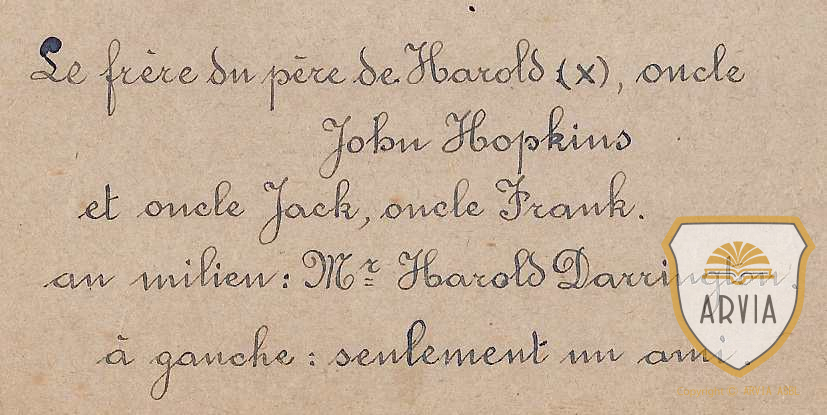 Le frère du père de Harold (x), oncle
John Hopkins
et oncle Jack, oncle Frank.
au milieu: Mr Harold Darrington.
à gauche: seulement un ami.
ARVIA